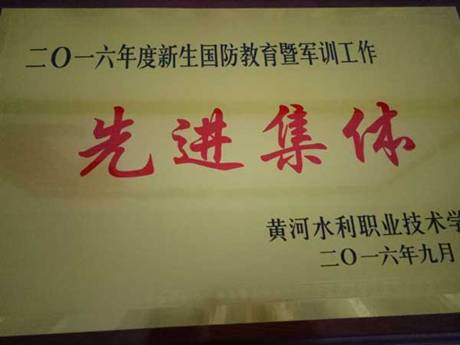 二〇一六年度新生国防教育暨军训工作
先进集体
黄河水利职业技术学
二〇一六年九月